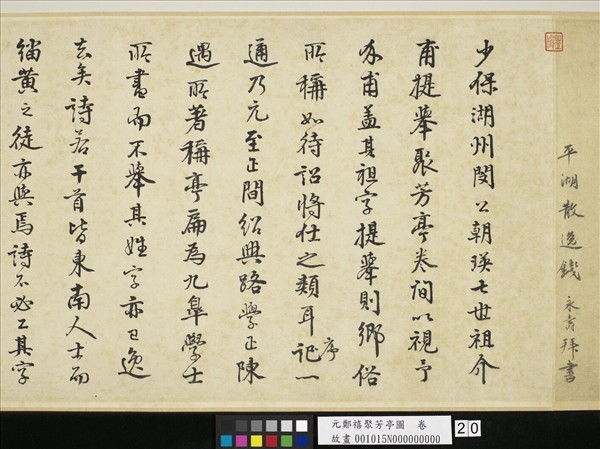 平湖散逸錢永芳拜書
少保湖州閔公朝瑛七世祖介
甫提舉聚芳亭卷間以視予
介甫蓋其祖字提舉則鄉俗
所稱如待詔將仕之類耳序記一
通乃元至正間紹興路學正陳
遇所著稱亭扁為九皋學士
所書而不舉其姓字亦已逸
去矣詩若干首皆東南人士而
緇黃之徒亦與焉詩不必工其字
元鄭禧聚芳亭圖 卷
故畫 001015N000000000
20